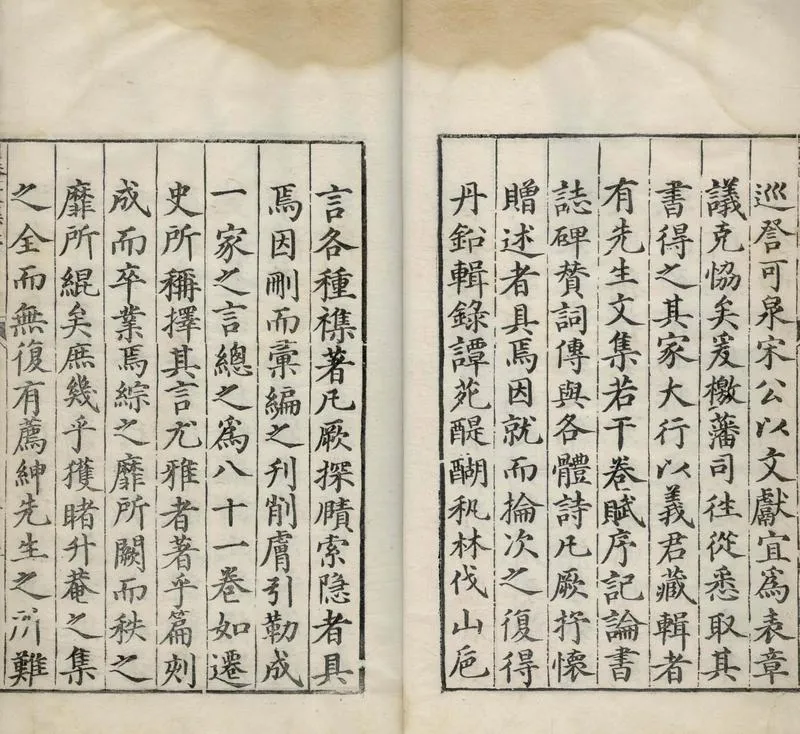 巡詧可泉宋公以文獻宜為表章
議克恊矣爰檄藩司徃從悉取其
書得之其家大行以義君藏輯者
有先生文集若干卷賦序記論書
誌碑賛詞傳與各體詩凡厥抒懷
贈述者具焉因就而掄次之復得
丹鉛輯錄譚苑醍醐秇林伐山巵
言各種襍著凡厥探賾索隐者具
焉因刪而彙編之刋削膚引勒成
一家之言總之為八十一卷如遷
史所稱擇其言尤雅者著乎篇刻
成而卒業焉綜之靡所闕而秩之
靡所緄矣庶幾乎獲睹升菴之集
之全而無復有薦紳先生之所難